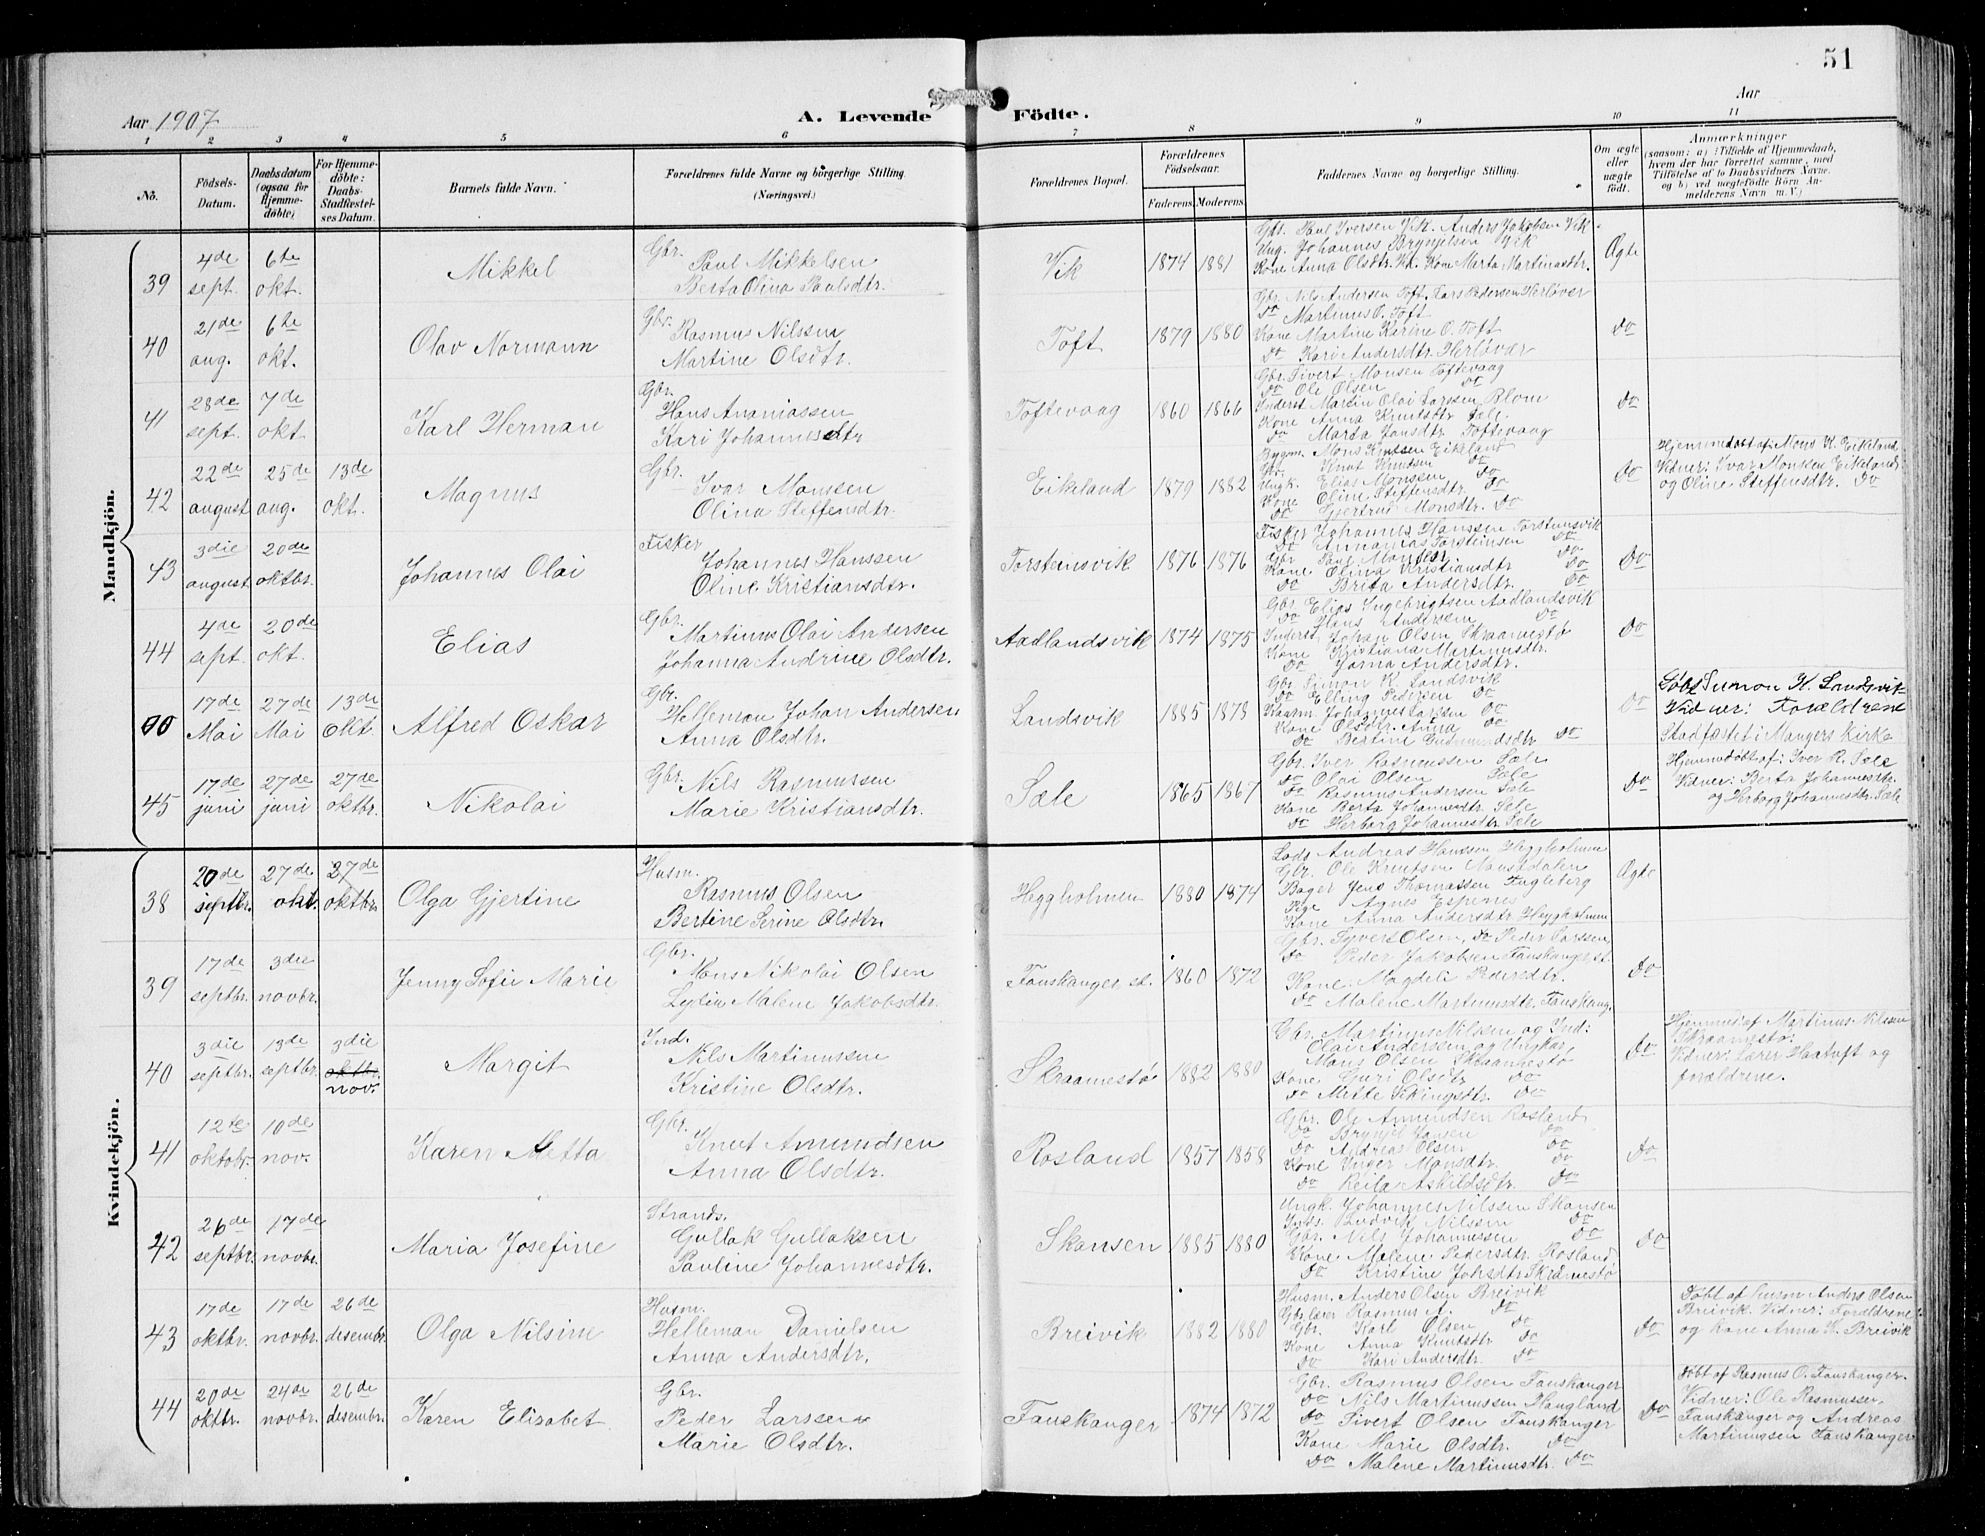 51
Aar 1907
A. Levende Födte.
Aar
1 2 3 4 5 6 7 8 9 10 11
No.
Födsels-Datum.
Daabsdatum (ogsaa for Hjemmedöbte)
For Hjemmedöbte: Daabs-Stadfæstelses Datum.
Barnets fulde Navn.
Forældrenes fulde Navne og borgerlige Stilling. (Næringsvei.)
Forældrenes Bopæl.
Forældrenes Födselsaar.
Faderens. Moderens.
Faddernes Navne og borgerlige Stilling.
Om ægte eller uægte födt.
Anmærkninger (saasom: a) i Tilfælde af Hjemmedaab, hvem der har forrettet samme, med Tilföielse af to Daabsvidners Navne. og b) ved uægtefödte Börn Anmelderens Navn m. V.)
Mandkjön.
39 4de sept. 6te okt. Mikkel
Gbr. Paul Mikkelsen
Berta Olina Paulsdtr.
Vik 1874 1881
Gbr. Paul Iversen Vik. Anders Jakobsen Vik
Ung. Johannes Brynjelsen Vik
Kone Anna Olsdtr. Vik. Kone Marta Martinasdtr.
Ægte
40 21de aug. 6te okt. Olav Normann
Gbr. Rasmus Nilssen
Martine Olsdtr.
Toft 1879 1880
Gbr. Nils Andersen Toft. Lars Pedersen Herløver
Do Martinus O. Toft
Kone Martine Karine O. Toft
Do Kari Andersdtr. Herløver
Do
41 28de sept. 7de okt. Karl Herman
Gbr. Hans Ananiassen
Kari Johannesdtr
Toftevaag 1860 1866
Gbr. Sivert Monsen Toftevaag
Do Ole Olsen Do
Inderst Martin Olai Larssen Blom
Kone Anna Knutsdtr Sæle.
Do Marta Jansdtr Toftevaag
Do
42 22de august 25de aug. 13de okt. Magnus
Gbr. Ivar Monsen
Olina Steffensdtr.
Eikeland 1879 1882
Bygm. Mons Knutsen Eikeland
Gbr. Knut Knutsen Do
Ungk. Elias Monsen Do
Kone Oline Steffensdtr. Do
Do Gjertrud Monsdtr. Do
Do
Hjemmedøbt af: Mons K. Eikeland
Vidner: Ivar Monsen Eikeland
og Oline Steffensdtr. Do
43 3die august 20de oktbr. Johannes Olai
Fisker Johannes Hanssen
Oline Kristiansdtr.
Torsteinsvik 1876 1876
Fisker Johannes Hanssen Torsteinsvik
Do Annanias Torsteinsen Do
Gbr. Paul Do
Kone Olina Kristiansdtr Do
Do Brita Andersdtr. Do
Do
44 4de sept. 20de okt. Elias
Gbr. Martinus Olai Andersen
Johanna Andrine Olsdtr.
Aadlandsvik 1874 1875
Gbr. Elias Ingebrigtsen Aadlandsvik
Do Hans Andersen Do
Inderst Johan Olsen Skraamestø
Kone Kristiana Martinusdtr.
Do Jorna Andersdtr.
Do
00 17de Mai 27de Mai 13de Okt. Alfred Oskar
Gbr. Helleman Johan Andersen
Anna Olsdtr.
Landsvik 1885 1878
Gbr Simon K. Landsvik
Do Elling Pedersen Do
Johannes Larssen Do
Kone Olsdtr. Anna Do
Do Bertine Gudmundsdtr Do
Do
Døbt Simon K. Landsvik
Vidner: Forældrene
Stadfæstet i Mangers Kirke
45 17de juni 27de juni 27de oktbr. Nikolai
Gbr. Nils Rasmussen
Marie Kristiansdtr.
Sæle 1865 1867
Gbr. Iver Rasmussen Sæle
Do Olai Olsen Sæle
Do Rasmus Andersen Sæle
Kone Berta Johannesdtr. Sæle
Do Herborg Johannesdtr. Sæle
Do
Hjemmedøbt af: Iver R. Sæle
Vidner: Berta Johannesdtr.
og Herborg Johannesdtr. Sæle
Kvindekjön.
38 20de septbr. 27de okt. 27de oktbr. Olga Gjertine
Husm. Rasmus Olsen
Bertine Serine Olsdtr.
Heggholmen 1880 1874
Lods Andreas Hanssen Heggholmen
Gbr. Ole Knutsen
Bager Jens Thomassen
Pige Agnes Espenes
Kone Anna Andersdtr Heggholmen
Ægte
39 17de septbr. 3die novbr. Jenny Sofie Marie
Gbr. Mons Nikolai Olsen
Malene Jakobsdtr.
Fonskanger st. 1860 1872
Gbr. Syvert Olsen, Do Peder Larssen,
Do Peder Jakobsen Fanskanger st.
Kone Magdeli Pedersdtr.
Do Malene Martinusdtr. Fanskang.
Do
40 3die septbr. 13de septbr. 3die oktbr. nov. Margit
Ind. Nils Martinussen
Kristine Olsdtr.
Skraamestø 1882 1880
Gbr. Martinus Nilssen og Ind:
Olai Anderssen og Ungkar,
Mons Olsen Skraamestø
Kone Guri Olsdtr Do
Do Mette Vikingsdtr. Do
Do
Hjemmed. af Martinus Nilssen
Skraamestø.
Vidner: Lærer Haatuft og
forældrene.
41 12te oktobr. 10de nov. Karen Metta
Gbr. Knut Amundsen
Anna Olsdtr.
Rosland 1857 1858
Gbr. Ole Amundsen Rosland.
Do Brynjel Do
Do Andreas Olsen Do
Kone Inger Monsdtr. Do
Do Askildsdtr. Do
Do
42 26de septbr. 17de novbr. Maria Josefine
Strands. Gullak Gullaksen
Pauline Johannesdtr.
Skansen 1885 1880
Ungk. Johannes Nilssen Skansen
Ludvik Nilssen Do
Gbr. Nils Johannessen Do
Kone Malene Pedersdtr. Rosland
Do Kristine Johsdtr Skramestø
Do
43 17de oktbr. 17de novbr. 26de desembr. Olga Nilsine
Husm. Helleman Danielsen
Anna Andersdtr.
Breivik 1882 1880
Husm. Anders Olsen Breivik
Rasmus A. Do
Gbr. Karl Olsen Do
Kone Anna Knutsdtr Do
Do Kari Andersdtr. Do
Do
Døbt af Husm Anders Olsen
Breivik. Vidner: Forældrene
og Kone Anna K. Breivik
44 20de oktbr. 24de novbr. 26de desembr. Karen Elisabet
Gbr. Peder Larssen
Marie Olsdtr.
Fanskanger 1874 1872
Gbr. Rasmus Olsen Fanskanger
Do Nils Martinussen Haugland
Do Sivert Olsen Fanskanger
Kone Marie Olsdtr. Do
Do Malene Martinusdtr. Do
Do
Døbt af Rasmus O. Fanskanger.
Vidner: Ole Rasmussen,
Fanskanger og Andreas
Martinussen Fanskanger